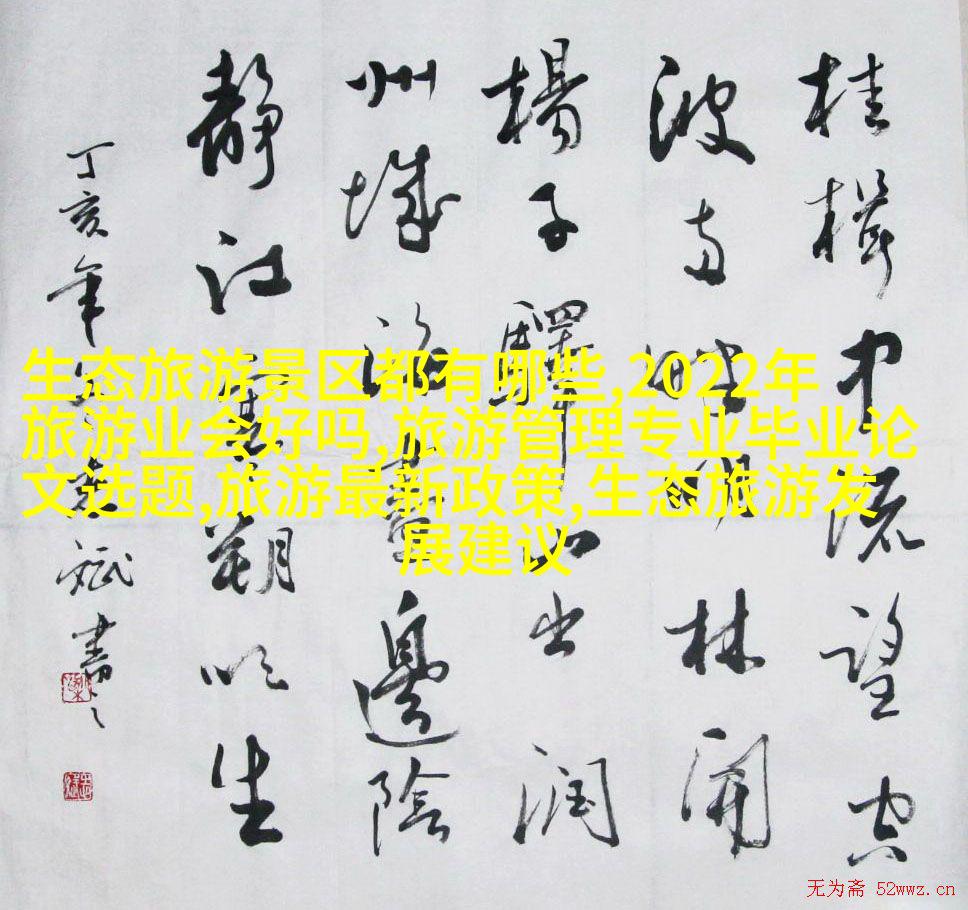 桂楫中流望空
波两畔明林开
楊子驛山出润
州城海盡邊陰
静江寒朔吹生
丁亥年斌書
生态旅游景区都有哪些,2022年
旅游业会好吗,旅游管理专业毕业论
文选题,旅游最新政策,生态旅游发
展建议
无为斋 52wwz.cn